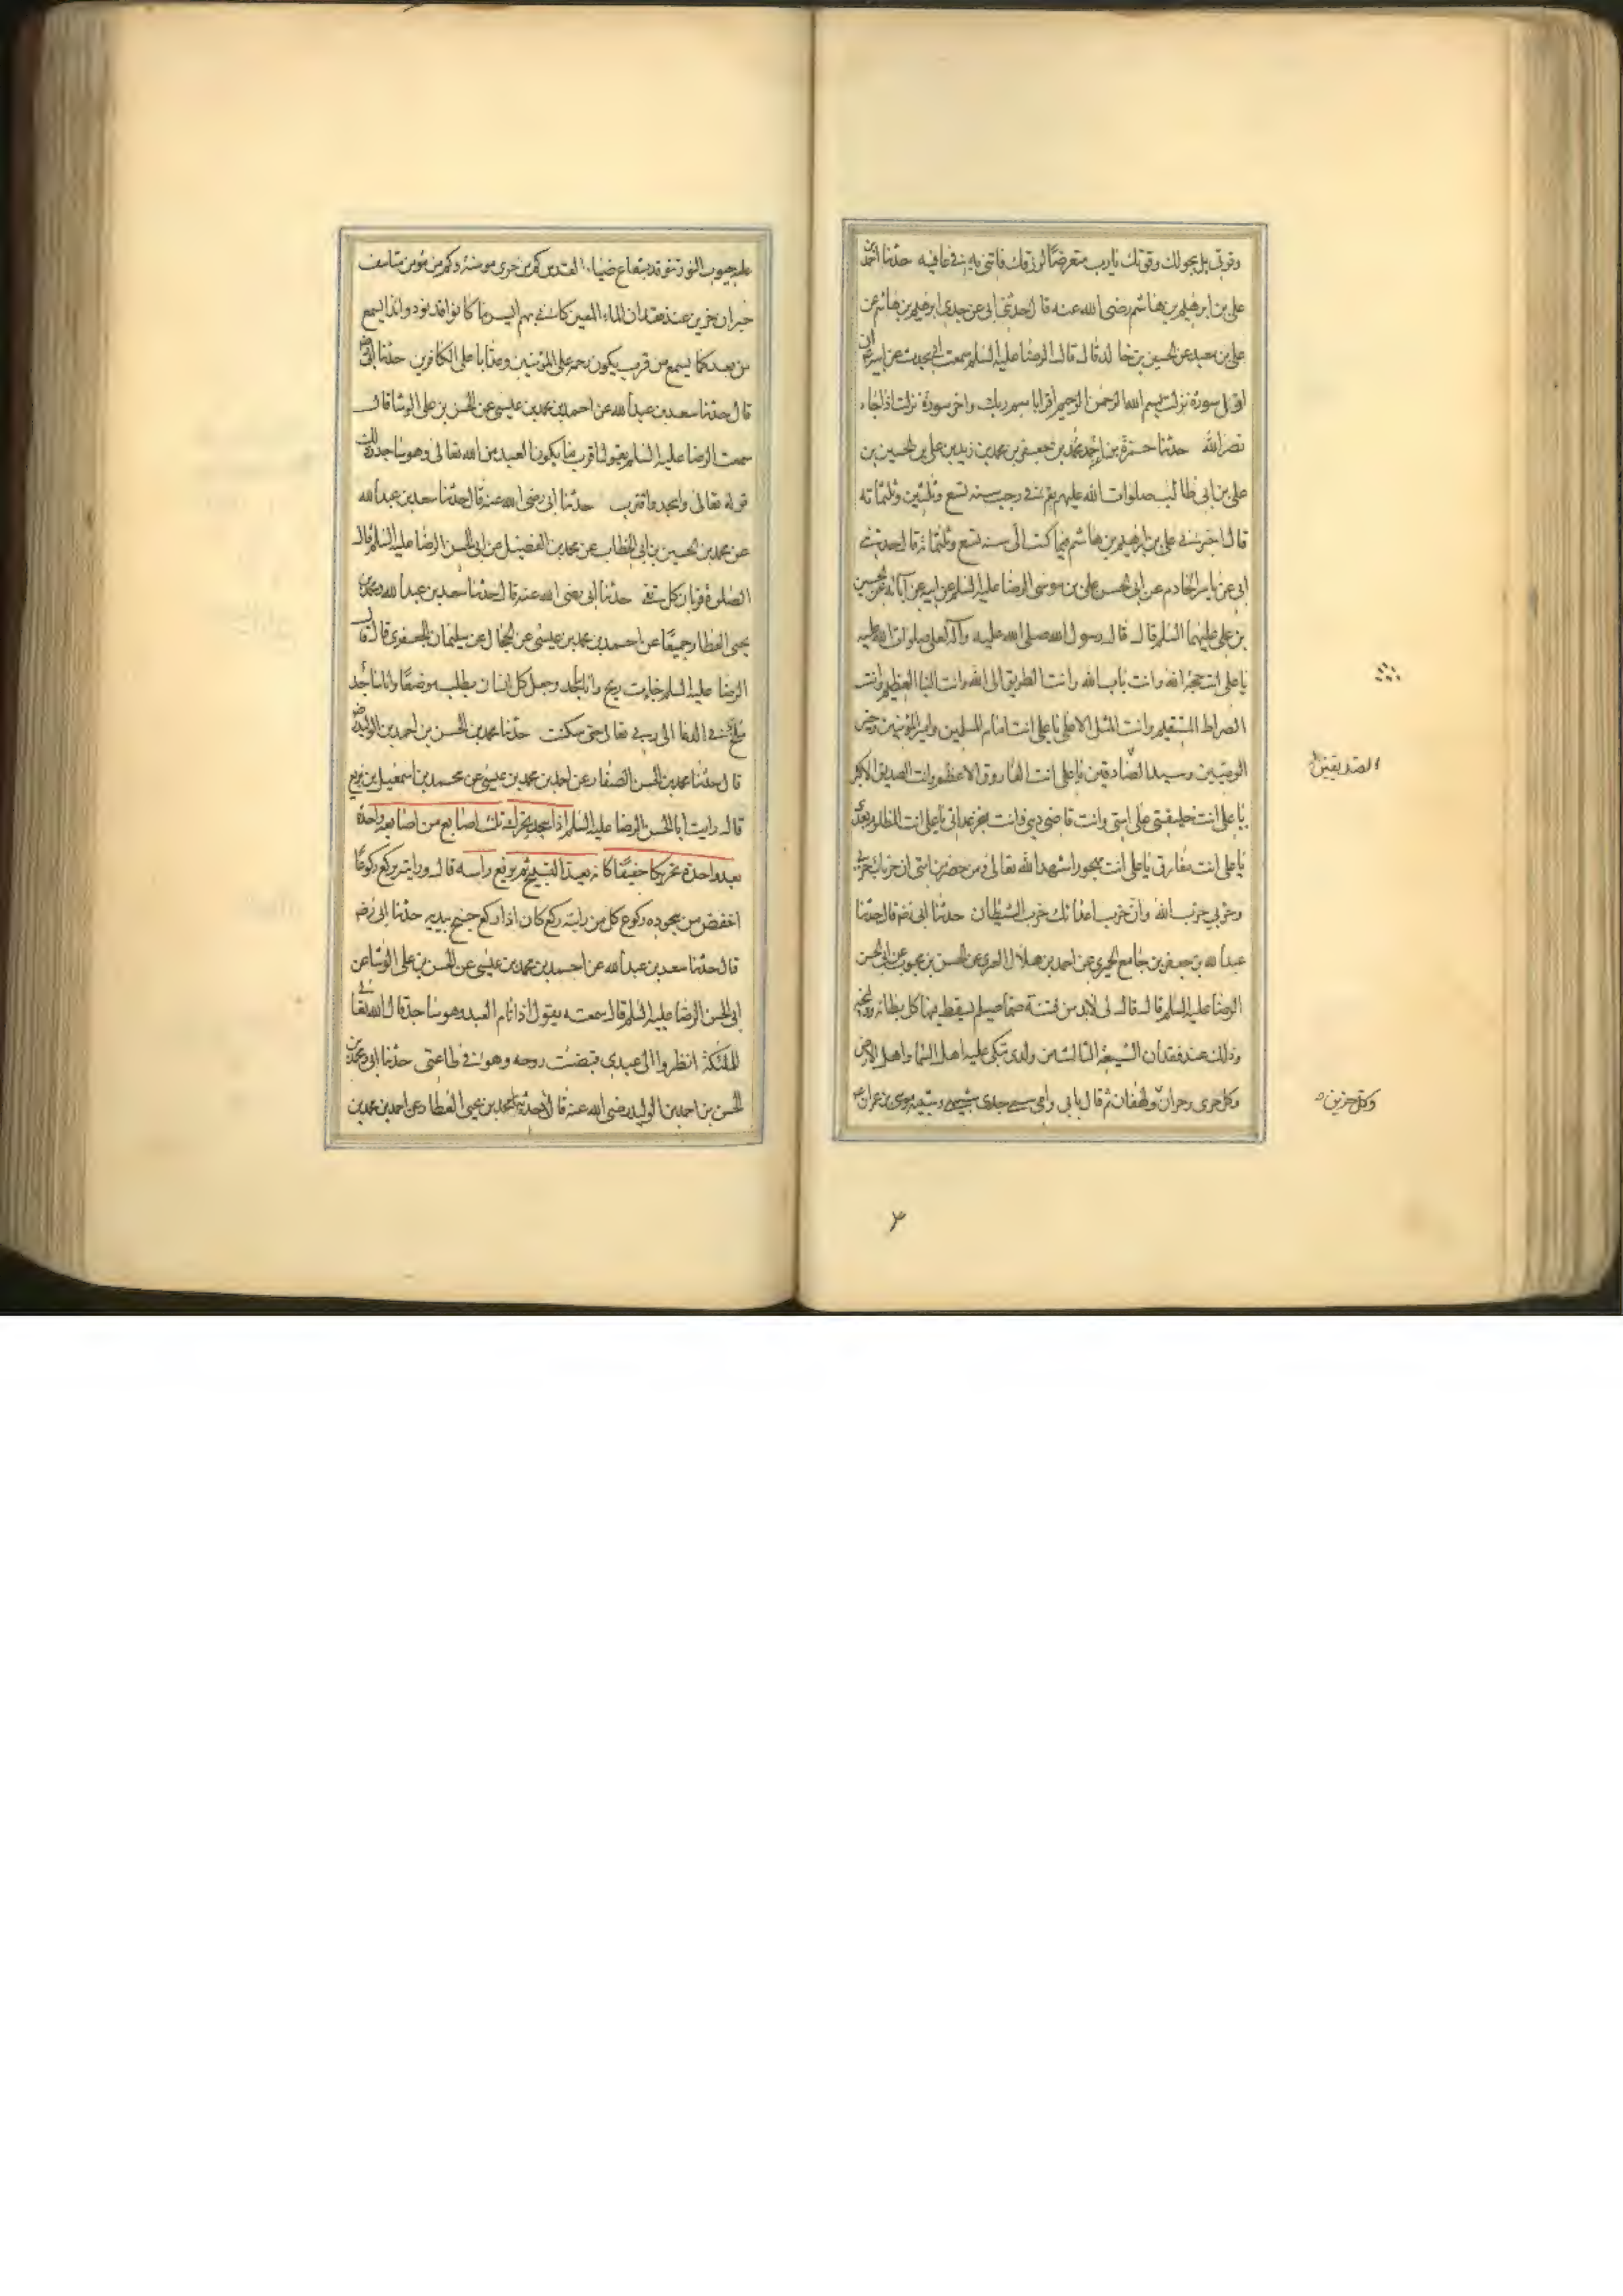 وقوتي بل بحولك وقوتك يا رب متعرضا لرزقك فاتني به في عافيه حدثنا احمد بن
علي بن ابرهيم بن هاشم رضي الله عنه قال حدثني ابي عن جدي ابرهيم بن هاشم عن
علي بن معبد عن الحسين بن خالد قال قال الرضا عليه السلم سمعت ابي يحدث عن ابيه ان
اول سورة نزلت بسم الله الرحمن الرحيم اقرا باسم ربك واخر سورة نزلت اذا جاء
نصر الله حدثنا حمزة بن احمد بن محمد بن جعفر بن محمد بن زيد بن علي بن الحسين بن
علي بن ابي طالب صلوات الله عليهم بقم في رجب سنه تسع وثلثين وثلثمائه
قال اخبرني علي بن ابرهيم بن هاشم فيما كتب الى سنه تسع وثلثمائه قال حدثني
ابي عن ياسر الخادم عن ابي الحسن علي بن موسى الرضا عليه السلم عن ابيه عن آبائه عن الحسين
بن علي عليهما السلم قال قال رسول الله صلى الله عليه وآله لعلي صلوات الله عليه
يا علي انت حجة الله وانت باب الله وانت الطريق الى الله وانت النبا العظيم وانت
الصراط المستقيم وانت المثل الاعلى يا علي انت امام المسلمين وامير المؤمنين وخير
الوصيين وسيد الصادقين يا علي انت الفاروق الاعظم وانت الصديق الاكبر
الصديقين
يا علي انت خليفتي على امتي وانت قاضي ديني وانت منجز عداتي يا علي انت المظلوم بعدي
يا علي انت مفارق يا علي انت مهجور اشهد الله تعالى ومن حضر من امتي ان حزبك حزبي
وحزبي حزب الله وان حزب اعدائك حزب الشيطان حدثنا ابي رضه قال حدثنا
عبد الله بن جعفر بن جامع الحميري عن احمد بن هلال العبري عن الحسن بن محبوب عن ابي الحسن
الرضا عليه السلم قال قال لي لابد من فتنة صما صيلم يسقط فيها كل بطانه ووليجه
وذلك عند فقدان الشيعة الثالث من ولدي تبكي عليه اهل السما واهل الارض
وكل حرى وحران ولهفان ثم قال بابي وامي سمي جدي شبيهي وشبيه موسى بن عمران
وكل حزين
عليه جيوب النور تتوقد بشعاع ضياء القدس كم من حرى مومنة وكم من مومن متاسف
حيران حزين عند فقدان الماء المعين كاني بهم ايس ما كانوا قد نودوا ندا يسمع
من بعد كما يسمع من قرب يكون رحمه على المؤمنين وعذابا على الكافرين حدثنا ابي رضه
قال حدثنا سعد بن عبد الله عن احمد بن محمد بن عيسى عن الحسن بن علي الوشا قال
سمعت الرضا عليه السلم يقول اقرب ما يكون العبد من الله تعالى وهو ساجد وذلك
قوله تعالى واسجد واقترب حدثنا ابي رضي الله عنه قال حدثنا سعد بن عبد الله
عن محمد بن الحسين بن ابي الخطاب عن محمد بن الفضيل عن ابي الحسن الرضا عليه السلم قال
الصلوة قربان كل تقي حدثنا ابي رضي الله عنه قال حدثنا سعد بن عبد الله ومحمد بن
يحيى العطار جميعا عن احمد بن محمد بن عيسى عن الحجال عن سليمان الجعفري قال قال
الرضا عليه السلم جاءت ريح وانا ساجد وجعل كل انسان يطلب موضعا وانا ساجد
ملح في الدعا الى ربي تعالى حتى سكنت حدثنا محمد بن الحسن بن احمد بن الوليد رضه
قال حدثنا محمد بن الحسن الصفار عن احمد بن محمد بن عيسى عن محمد بن اسمعيل بن بزيع
قال رايت ابا الحسن الرضا عليه السلم اذا سجد يحرك ثلث اصابع من اصابعه واحدة
بعد واحدة تحريكا خفيفا كانه يعد التسبيح ثم يرفع راسه قال ورايته يركع ركوعا
اخفض من سجوده ركوع كل من رايته ركع كان اذا ركع جنح بيديه حدثنا ابي رضه
قال حدثنا سعد بن عبد الله عن احمد بن محمد بن عيسى عن الحسن بن علي الوشا عن
ابي الحسن الرضا عليه السلم قال سمعته يقول اذا نام العبد وهو ساجد قال الله تعالى
للملئكة انظروا الى عبدي قبضت روحه وهو في طاعتي حدثنا ابي ومحمد بن
الحسن بن احمد بن الوليد رضي الله عنه قال حدثنا محمد بن يحيى العطار عن احمد بن محمد بن